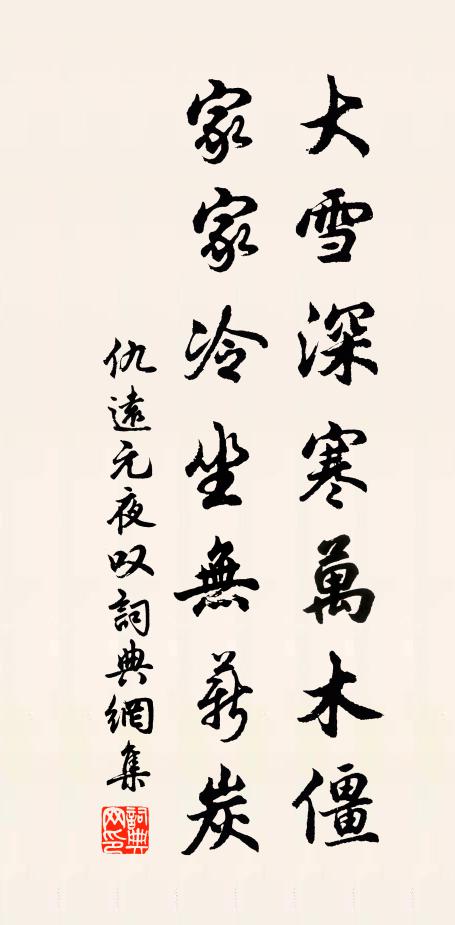 大雪深寒萬木僵
家家冷坐無薪炭
仇遠元夜叹詞典網集
詞典网印